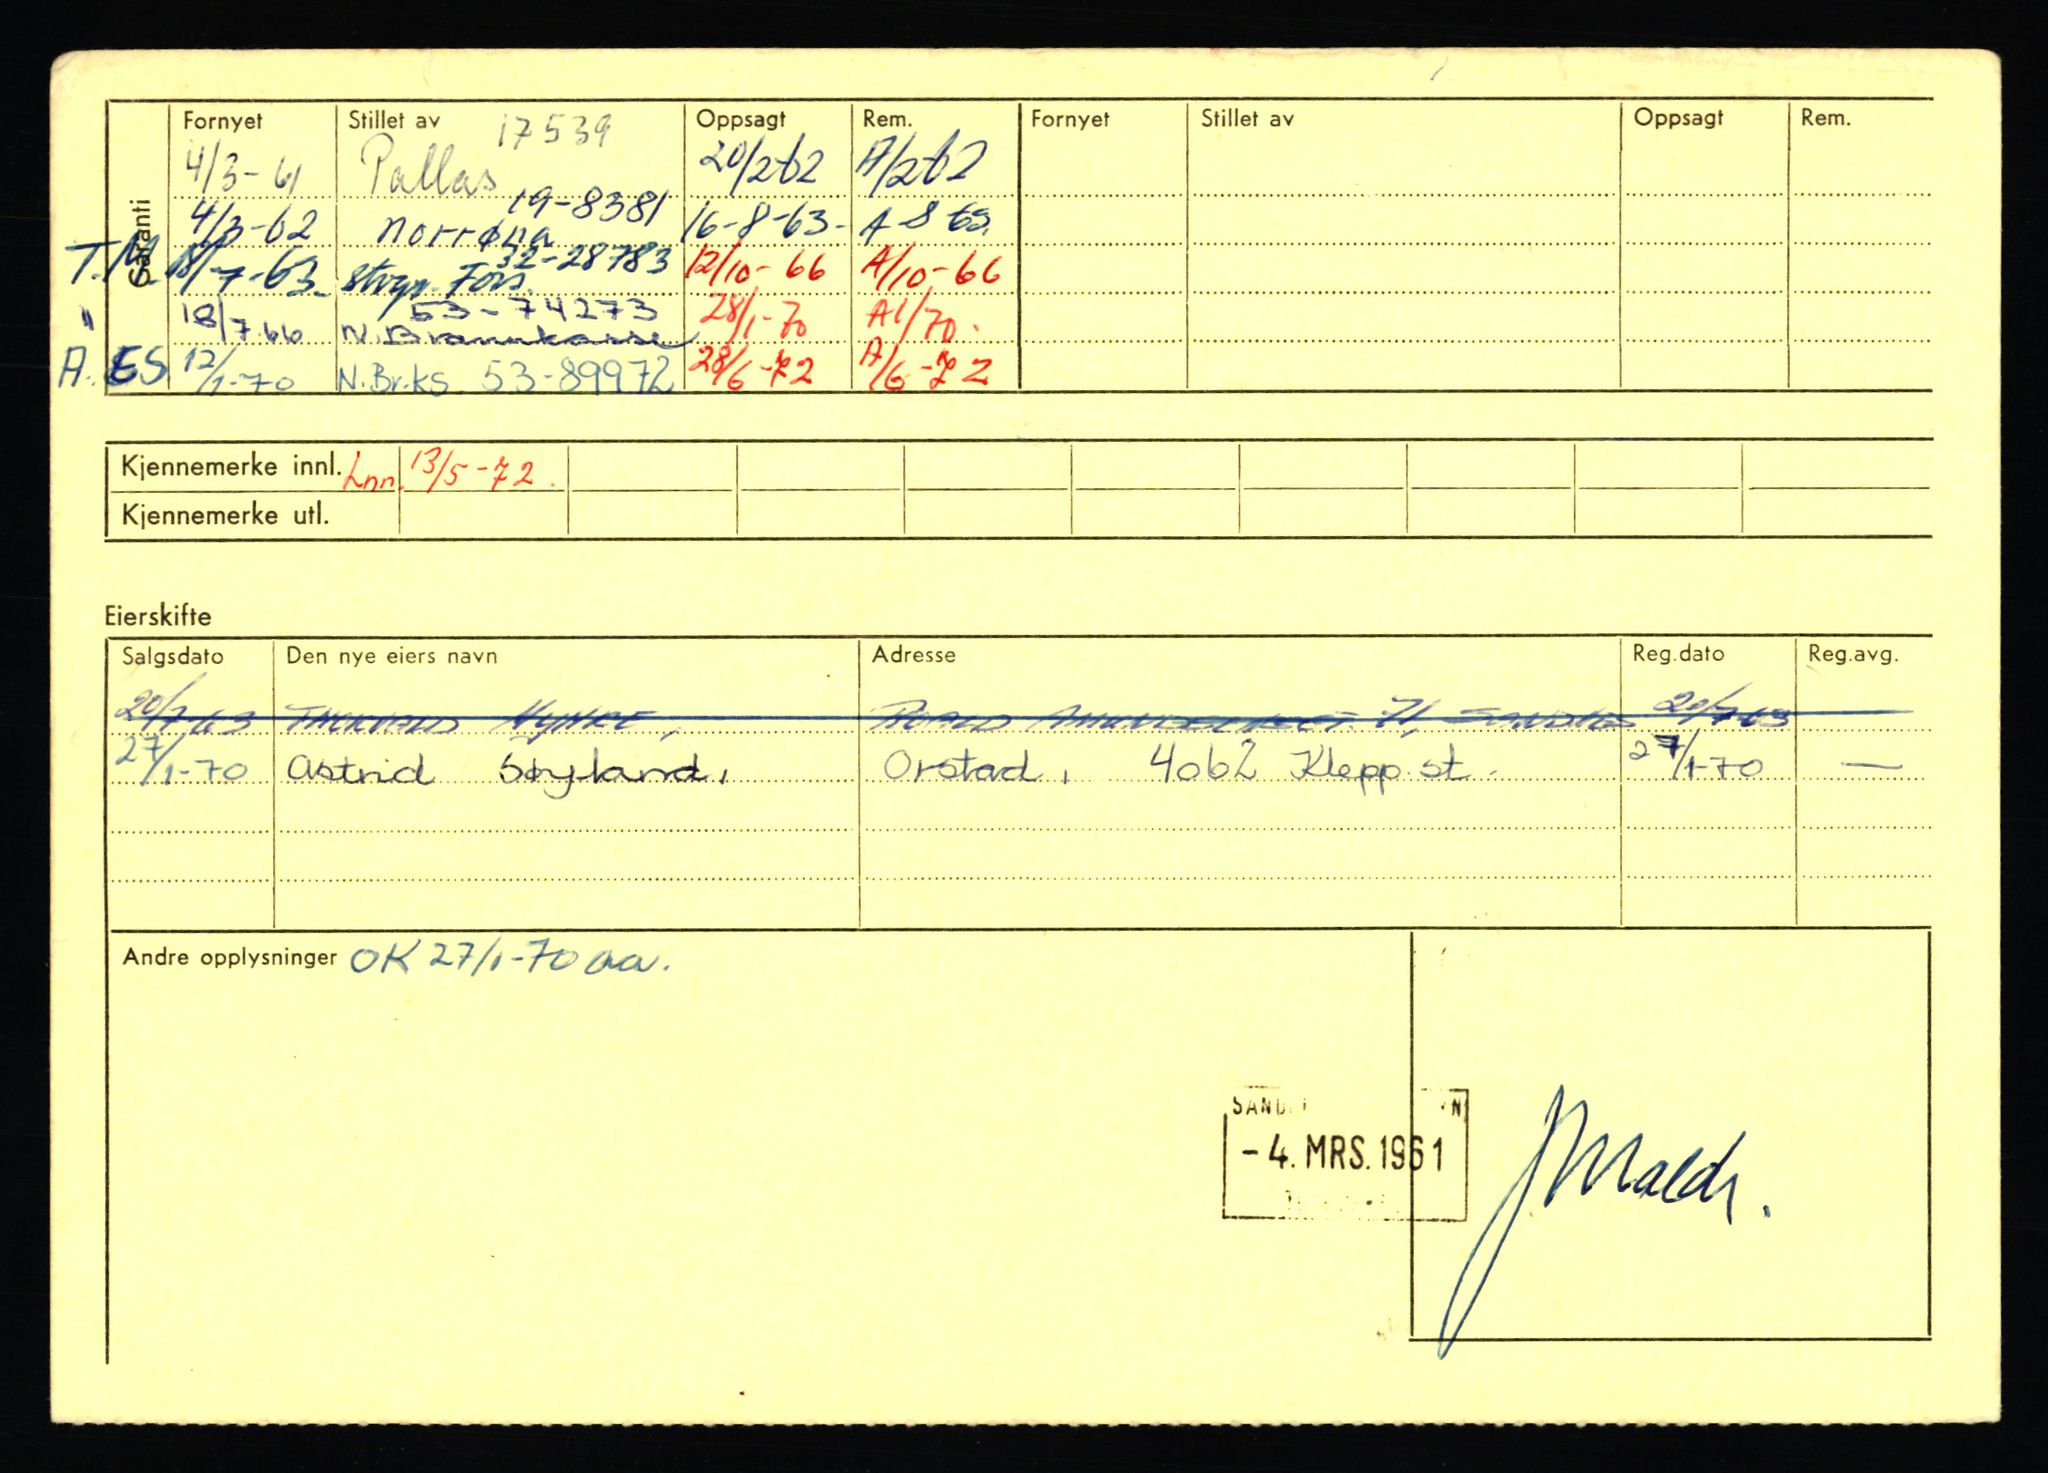 Garanti
Fornyet Stillet av Oppsagt Rem. Fornyet Stillet av Oppsagt Rem.
17539
4/3-61 Pallas 20/2-62 A/2 62
19-8381
4/3-62 norrøna 16-8-63- A-8 63.
32-28783
T.M. 18/-7-63- 12/10-66 A/10-66
53-74273
" 18/7.66 N. Brannkasse 28/1-70 A1/70.
A. ES 12/1-70 N.Br.ks. 53-89972 28/6-72 A/6-72
Kjennemerke innl. Lnn. 13/5-72.
Kjennemerke utl.
Eierskifte
Salgsdato Den nye eiers navn Adresse Reg.dato Reg.avg.
20/7 63 71, 20/7-63
27/1-70 Astrid Søyland, Orstad, 4062 Klepp st. 27/1-70 —
Andre opplysninger OK 27/1-70 aa.
SAND
-4. MRS. 1961